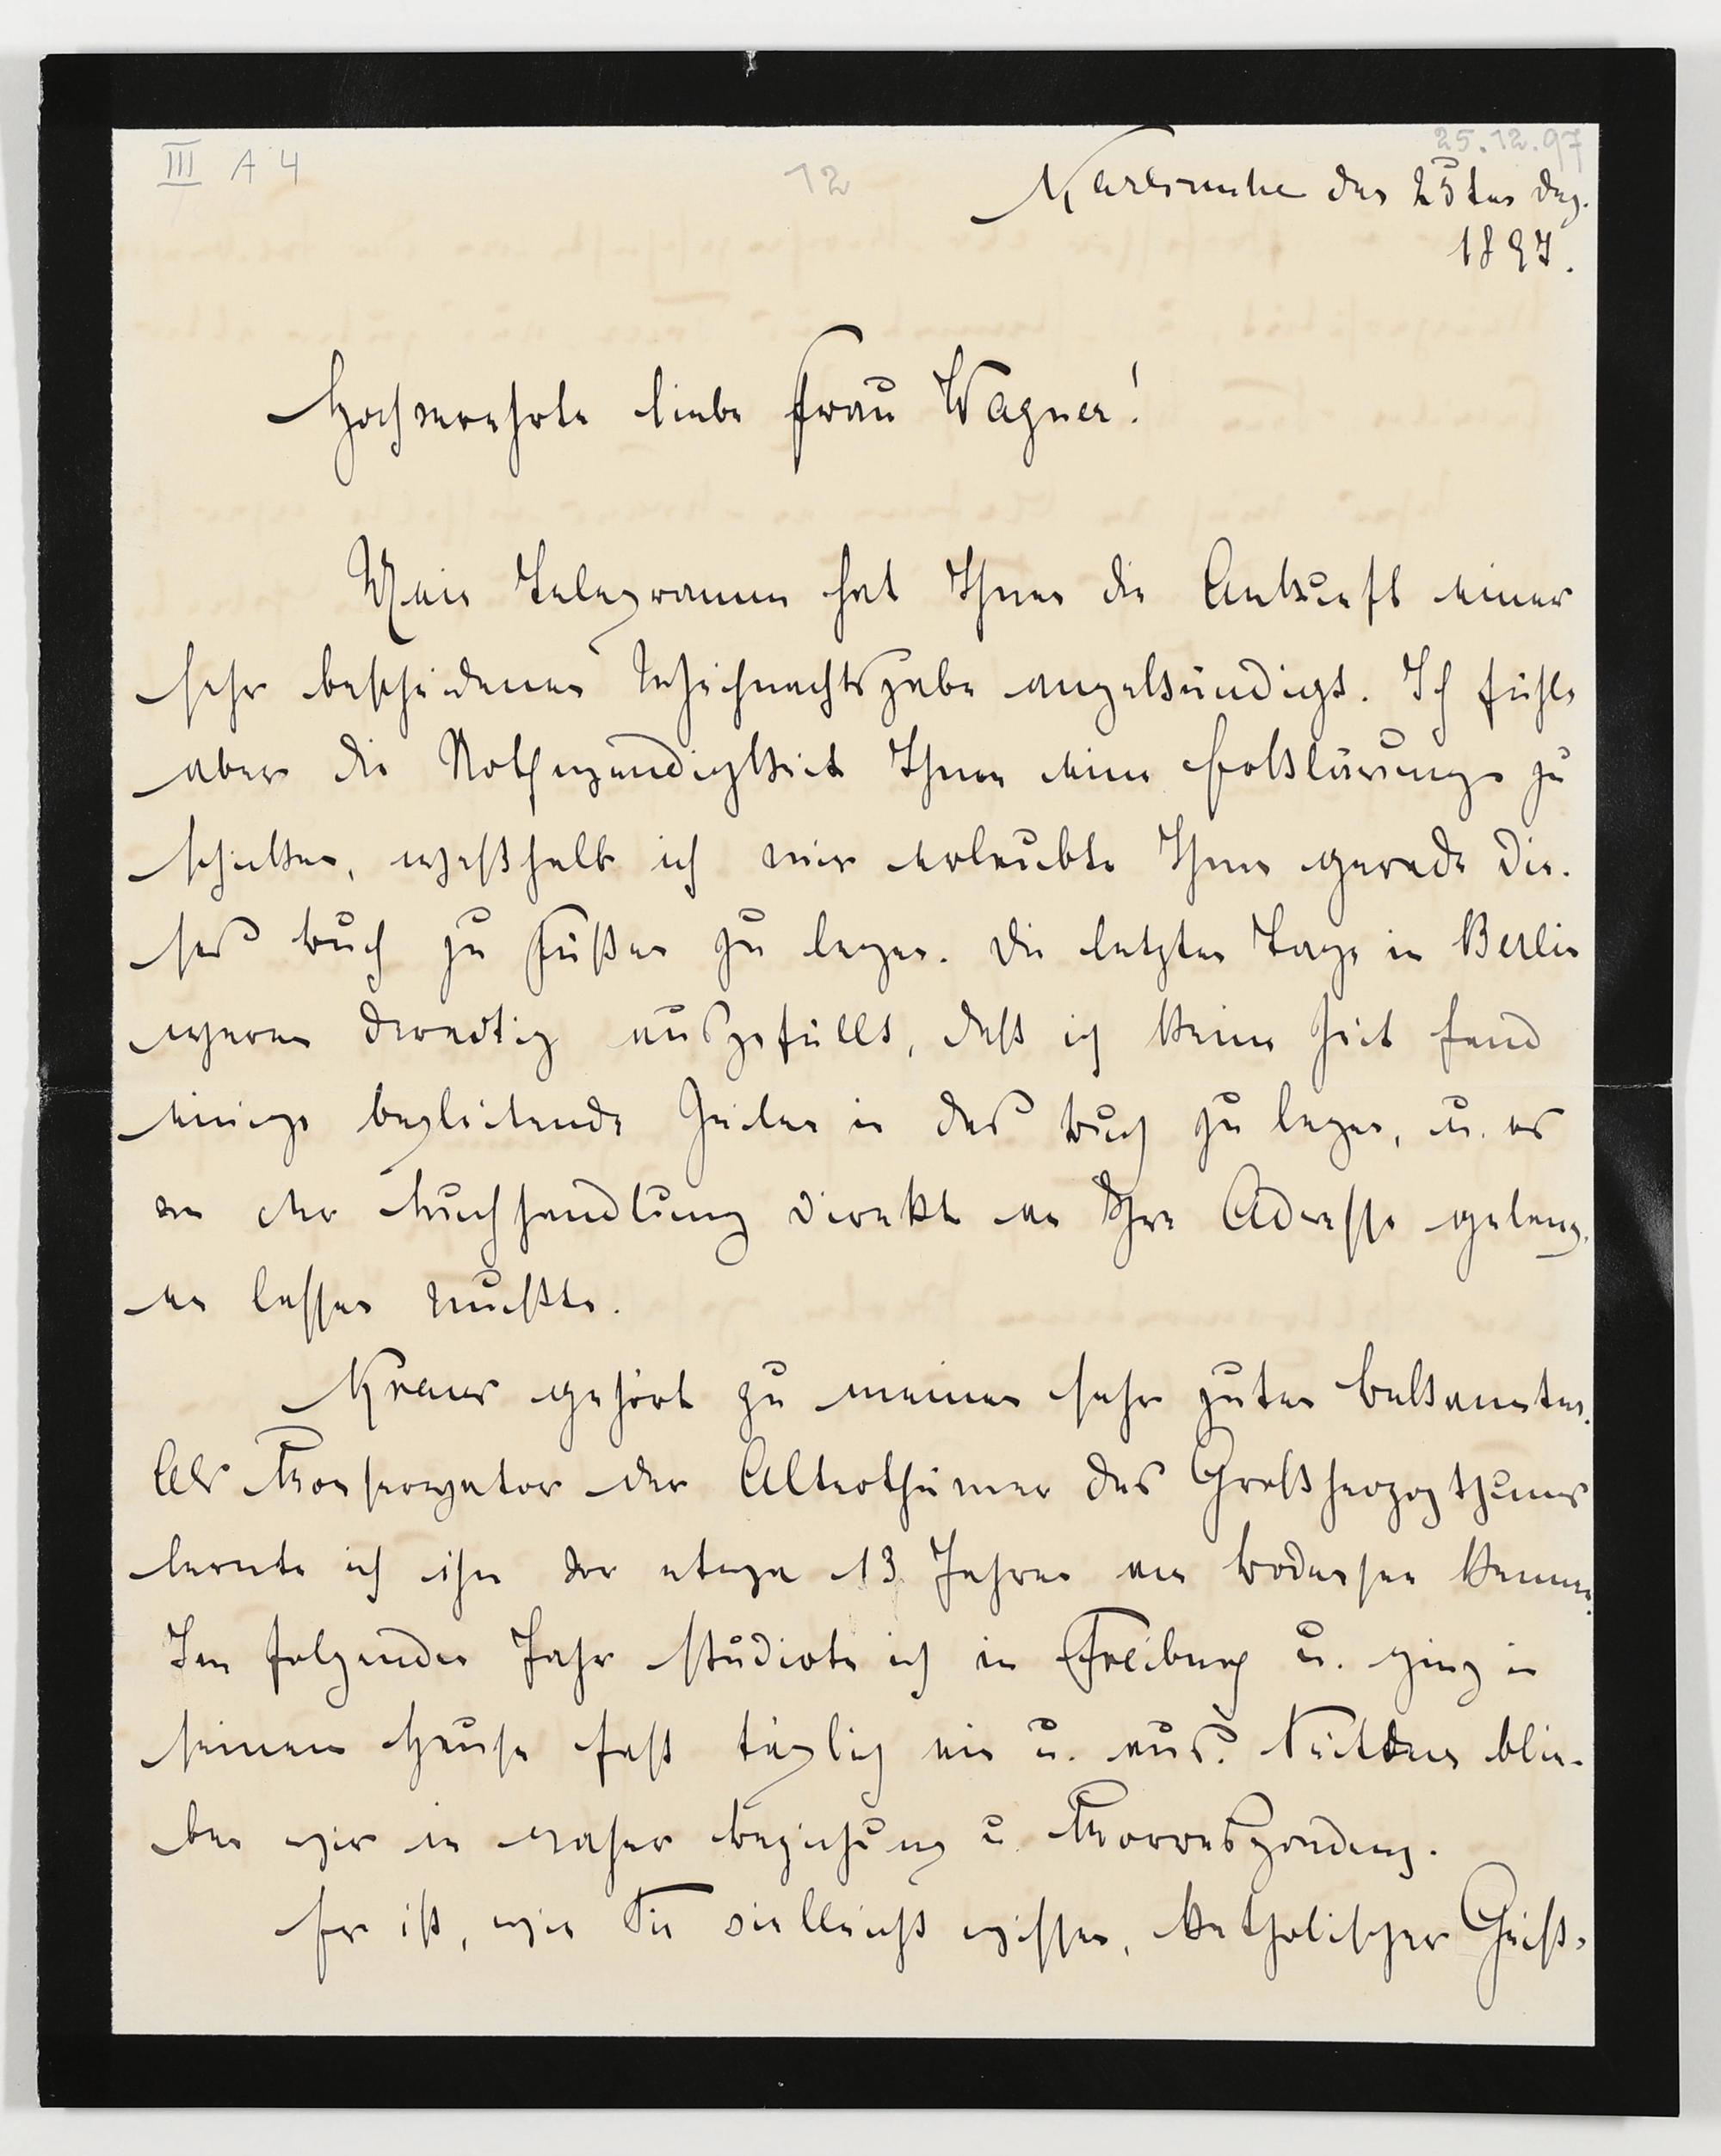 III A 4
12
25.12.97
Karlsruhe den 25ten Dez.
1897.
Hochverehrte liebe Frau Wagner!
Mein Telegramm hat Ihnen die Ankunft einer
sehr bescheidenen Weihnachtsgabe angekündigt. Ich fühle
aber die Nothwendigkeit Ihnen eine Erklärung zu
schicken, weßhalb ich mir erlaubte Ihnen gerade die-
ses Buch zu Füßen zu legen. Die letzten Tage in Berlin
waren derartig ausgefüllt, daß ich keine Zeit fand
einige begleitende Zeilen in das Buch zu legen, u. es
von der Buchhandlung direkt an Ihre Adresse gelang-
en lassen mußte.
Kraus gehört zu meinen sehr guten Bekannten.
Als Konservator der Alterthümer des Großherzogthums
lernte ich ihn vor etwa 13 Jahren am Bodensee kennen.
Im folgenden Jahr studirte ich in Freiburg u. ging in
seinem Hause fast täglich ein u. aus. Seitdem blie-
ben wir in naher Beziehung u. Korrespondenz.
Er ist, wie Sie vielleicht wissen, katholischer Geist-